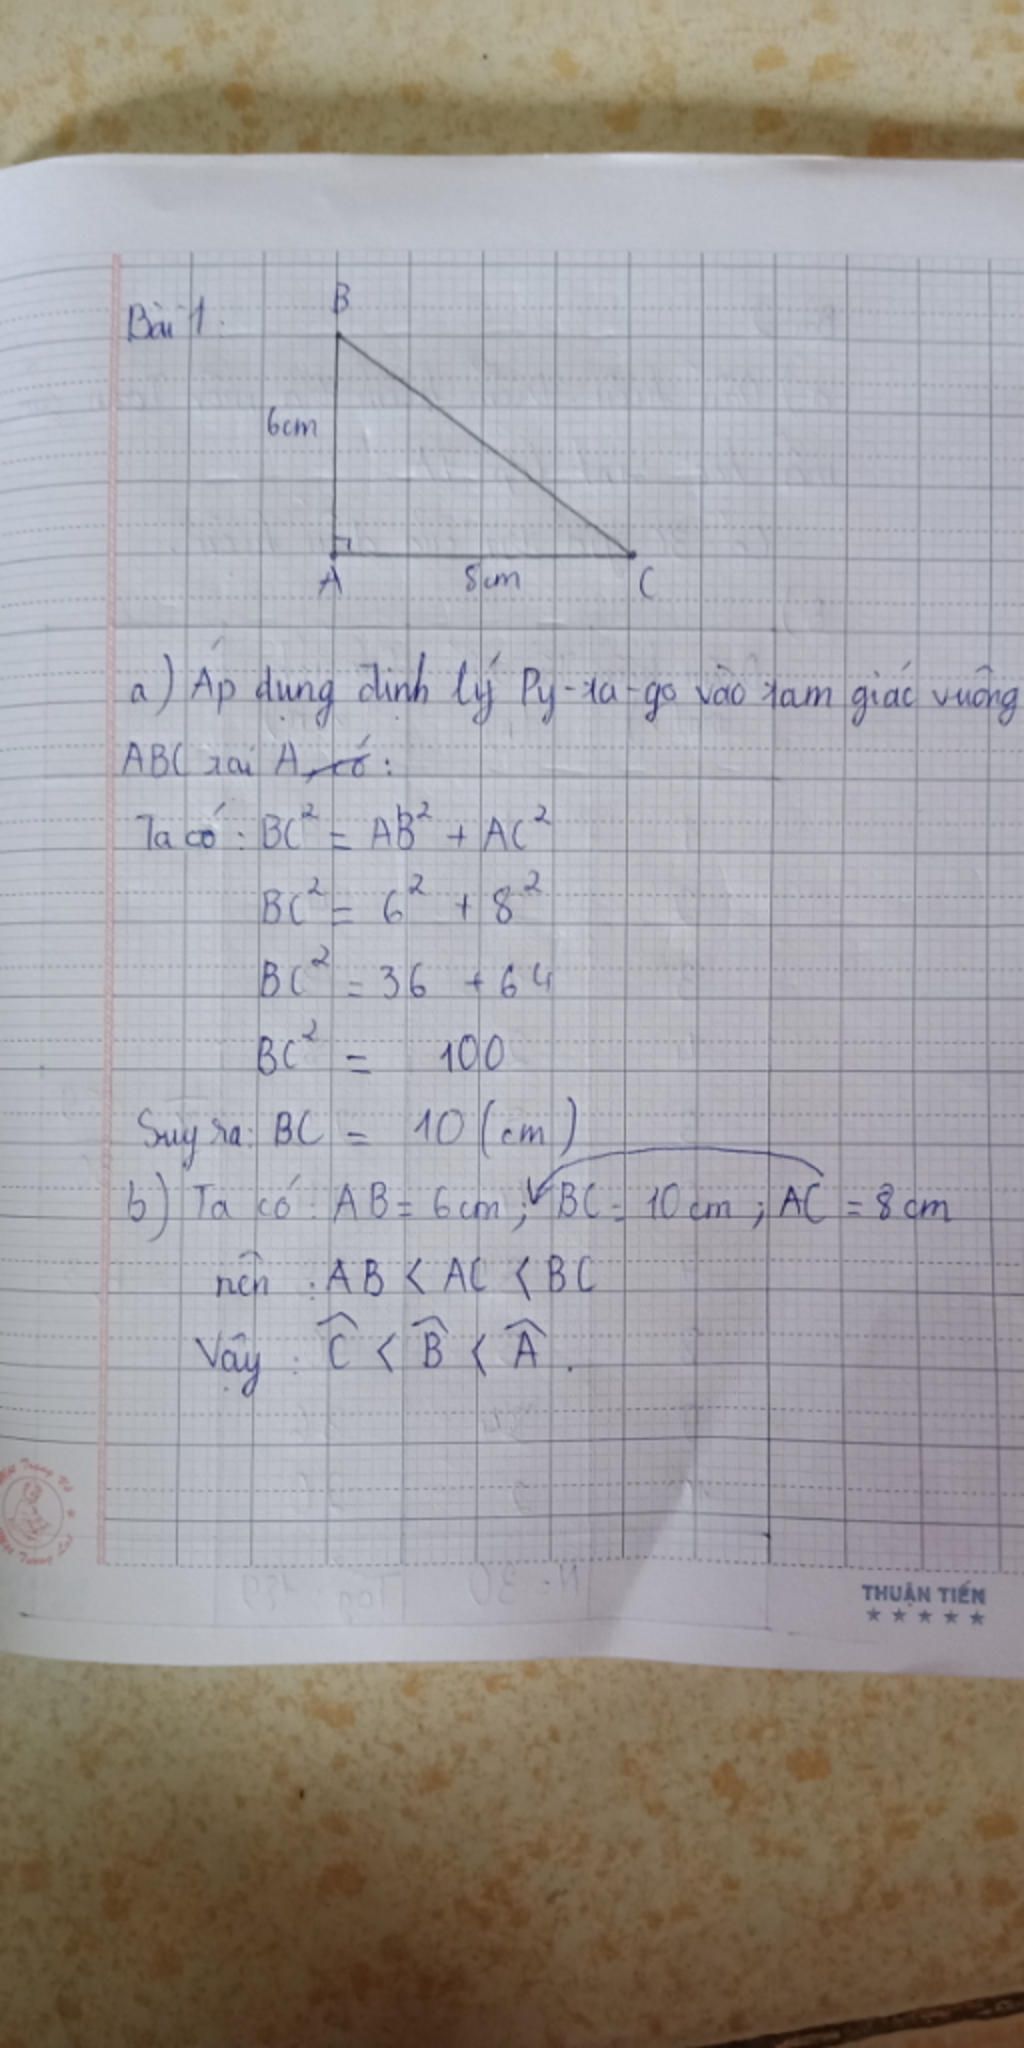 Bài 1:
B
6cm
A
8cm
C
a) Áp dụng định lý Py-ta-go vào tam giác vuông
ABC tại A, có:
Ta có: BC² = AB² + AC²
BC² = 6² + 8²
BC² = 36 + 64
BC² = 100
Suy ra: BC = 10 (cm)
b) Ta có: AB = 6cm; BC = 10cm; AC = 8cm
nên: AB < AC < BC
Vậy: Ĉ < B̂ < Â.
THUẬN TIẾN